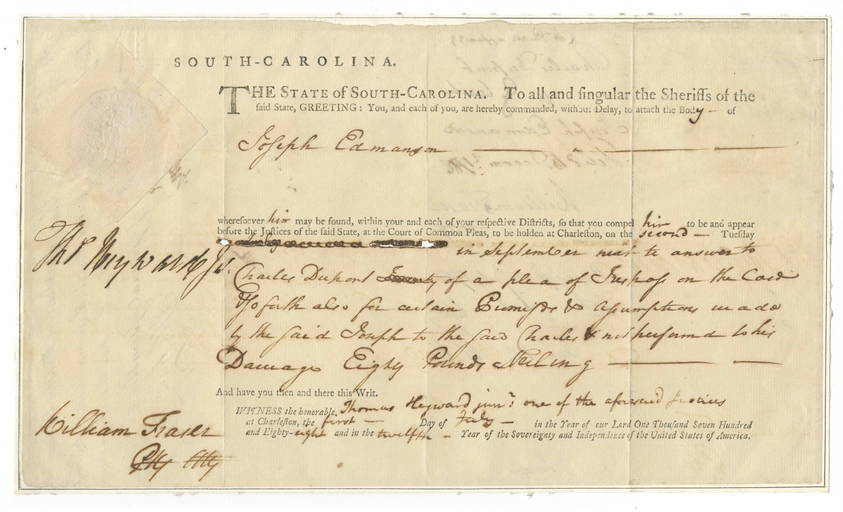 SOUTH-CAROLINA.
THE STATE of SOUTH-CAROLINA. To all and singular the Sheriffs of the
said State, GREETING: You, and each of you, are hereby commanded, without Delay, to attach the Body of
Joseph Edmanson
wheresoever him may be found, within your and each of your respective Districts, so that you compel him to be and appear
before the Justices of the said State, at the Court of Common Pleas, to be holden at Charleston, on the second Tuesday
in September next to answer to
Thos Heyward Jr.
Charles Dupont of a plea of Trespass on the Case
& so forth also for certain Promises & assumptions made
by the said Joseph to the said Charles & not performed to his
Damage Eighty Pounds Sterling
And have you then and there this Writ.
WITNESS the honorable, Thomas Heyward junr. one of the aforesaid Justices
at Charleston, the first Day of July in the Year of our Lord One Thousand Seven Hundred
and Eighty-eight and in the twelfth Year of the Sovereignty and Independence of the United States of America.
William Fraser